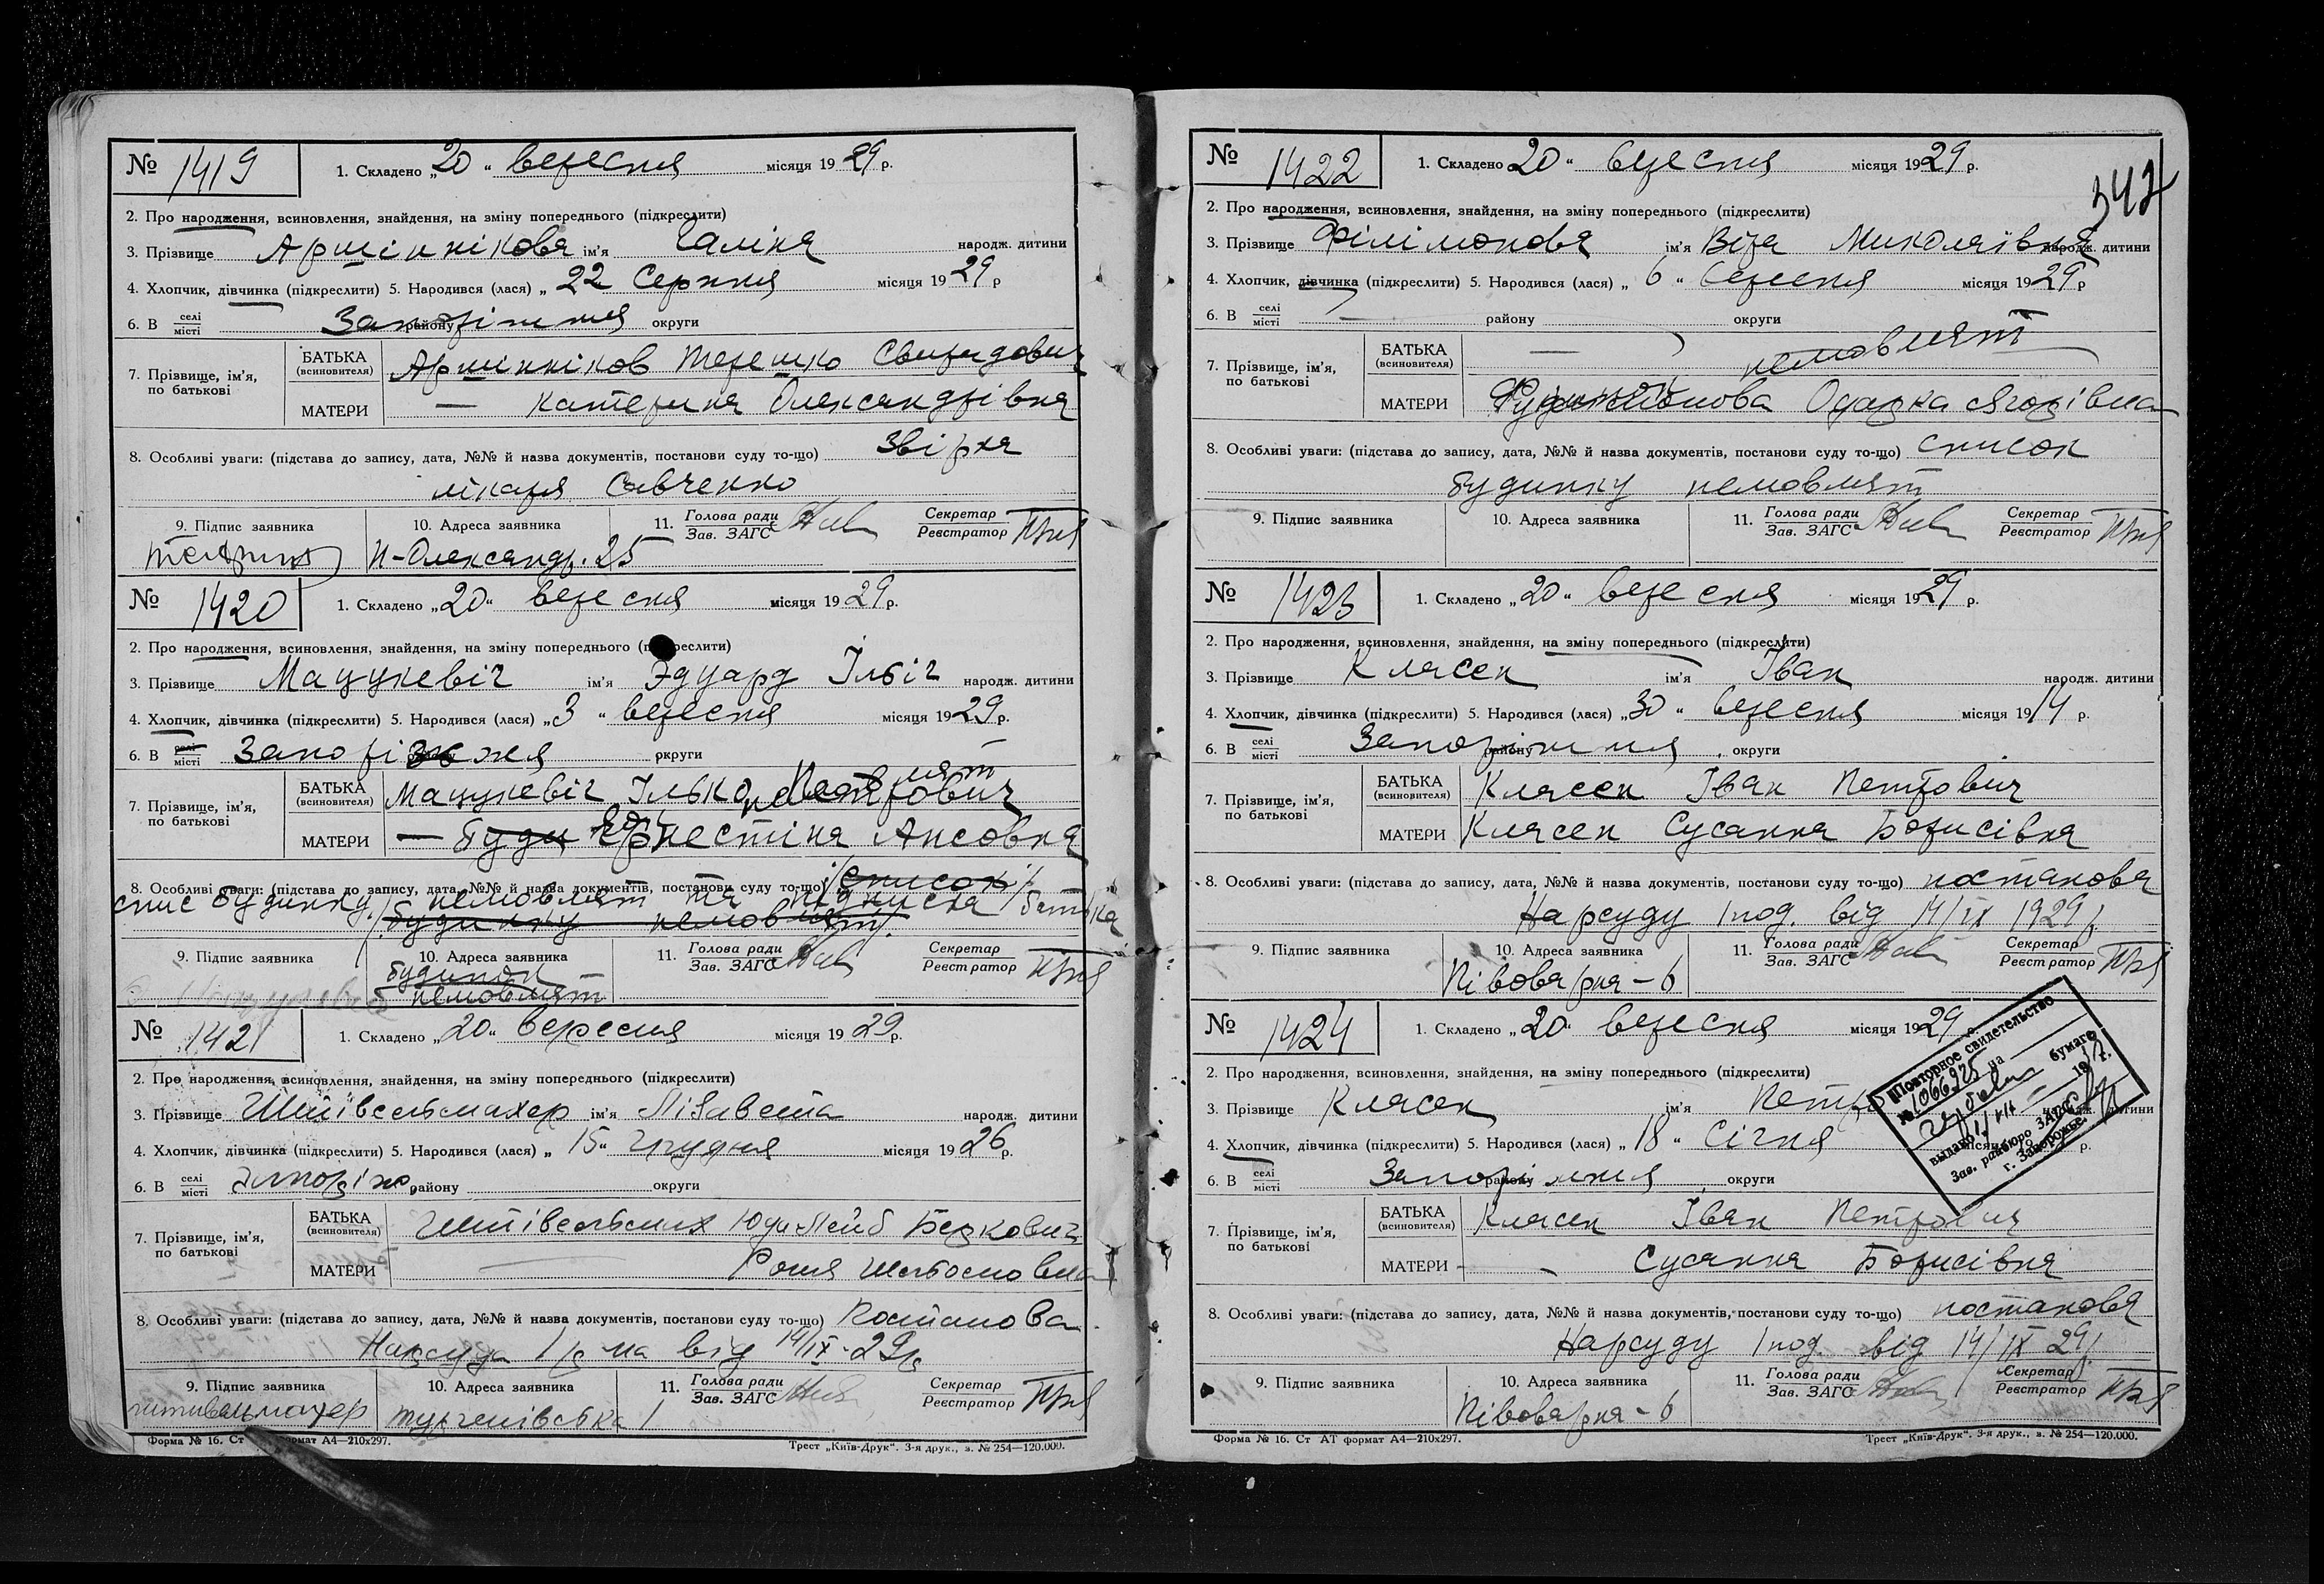 № 1419 1. Складено „20“ вересня місяця 1929 р.
2. Про народження, всиновлення, знайдення, на зміну попереднього (підкреслити)
3. Прізвище Аршіннікова ім’я Галіна народж. дитини
4. Хлопчик, дівчинка (підкреслити) 5. Народився (лася) „ 22 Серпня місяця 1929 р
6. В селі місті Запоріжжя району округи
7. Прізвище, ім’я, по батькові
БАТЬКА (всиновителя) Аршінніков Терешко Свиридович
МАТЕРИ — Катерина Олександрівна
8. Особливі уваги: (підстава до запису, дата, №№ й назва документів, постанови суду то-що) Звірка
лікаря Савченко
9. Підпис заявника 10. Адреса заявника 11. Голова ради Зав. ЗАГС Секретар Реєстратор
Н-Олександр. 25
№ 1420 1. Складено „20“ вересня місяця 1929 р.
2. Про народження, всиновлення, знайдення, на зміну попереднього (п реслити)
3. Прізвище Мацукевіч ім’я Эдуард Ільіч народж. дитини
4. Хлопчик, дівчинка (підкреслити) 5. Народився (лася) „3“ вересня місяця 1929 р.
6. В селі місті Запоріжжя округи
7. Прізвище, ім’я, по батькові
БАТЬКА (всиновителя) Мацукевіч Ілько Петрович
МАТЕРИ — Ернестіна Ансовна
8. Особливі уваги: (підстава до запису, дата, №№ й назва документів, постанови суду то-що) /список/
спис будинку немовлят та підписка батька
/будинку немовлят/.
9. Підпис заявника 10. Адреса заявника 11. Голова ради Зав. ЗАГС Секретар Реєстратор
будинок
немовлят
№ 1421 1. Складено „20“ вересня місяця 1929 р.
2. Про народження, всиновлення, знайдення, на зміну попереднього (підкреслити)
3. Прізвище Штівельмахер ім’я Лізавета народж. дитини
4. Хлопчик, дівчинка (підкреслити) 5. Народився (лася) „ 15“ грудня місяця 1926 р.
6. В селі місті Запоріж. району округи
7. Прізвище, ім’я, по батькові
БАТЬКА (всиновителя) Штівельмах Юда-Лейб Беркович
МАТЕРИ — Рося
8. Особливі уваги: (підстава до запису, дата, №№ й назва документів, постанови суду то-що) Постанова
Нарсуда 1 від 14/IX-29р
9. Підпис заявника 10. Адреса заявника 11. Голова ради Зав. ЗАГС Секретар Реєстратор
Тургенівська 1
Форма № 16. Ст формат А4—210х297. Трест „Київ-Друк“. 3-я друк., з. № 254—120.000.
342
№ 1422 1. Складено 20“ вересня місяця 1929 р.
2. Про народження, всиновлення, знайдення, на зміну попереднього (підкреслити)
3. Прізвище Філімонова ім’я Віра Миколаївна народж. дитини
4. Хлопчик, дівчинка (підкреслити) 5. Народився (лася) „ 6 “ вересня місяця 1929 р
6. В селі місті — району округи
7. Прізвище, ім’я, по батькові
БАТЬКА (всиновителя) — немовлят
МАТЕРИ Одарка
8. Особливі уваги: (підстава до запису, дата, №№ й назва документів, постанови суду то-що) список
будинку немовлят
9. Підпис заявника 10. Адреса заявника 11. Голова ради Зав. ЗАГС Секретар Реєстратор
№ 1423 1. Складено „20“ вересня місяця 1929 р.
2. Про народження, всиновлення, знайдення, на зміну попереднього (підкреслити)
3. Прізвище Клясен ім’я Іван народж. дитини
4. Хлопчик, дівчинка (підкреслити) 5. Народився (лася) „30“ вересня місяця 1914 р.
6. В селі місті Запоріжжя району округи
7. Прізвище, ім’я, по батькові
БАТЬКА (всиновителя) Клясен Іван Петрович
МАТЕРИ Клясен Сусанна Борисівна
8. Особливі уваги: (підстава до запису, дата, №№ й назва документів, постанови суду то-що) постанова
Нарсуду 1 под. від 14/IX 1929р.
9. Підпис заявника 10. Адреса заявника 11. Голова ради Зав. ЗАГС Секретар Реєстратор
Півоварня-6
№ 1424 1. Складено „20“ вересня місяця 1929
2. Про народження, всиновлення, знайдення, на зміну попереднього (підкреслити)
3. Прізвище Клясен ім’я Петро дитини
4. Хлопчик, дівчинка (підкреслити) 5. Народився (лася) „ 18 “ Січня р.
6. В селі місті Запоріжжя району округи
Повторное свидетельство
№ 1066925 на
бумаге
выдано
Зав. райбюро ЗАГС
г. Запорожье
7. Прізвище, ім’я, по батькові
БАТЬКА (всиновителя) Клясен Іван Петрович
МАТЕРИ - - Сусанна Борисівна
8. Особливі уваги: (підстава до запису, дата, №№ й назва документів, постанови суду то-що) постанова
Нарсуду 1 под. від 14/IX 29р.
9. Підпис заявника 10. Адреса заявника 11. Голова ради Зав. ЗАГС Секретар Реєстратор
Півоварня-6
Форма № 16. Ст АТ формат А4—210х297. Трест „Київ-Друк“. 3-я друк., з. № 254—120.000.